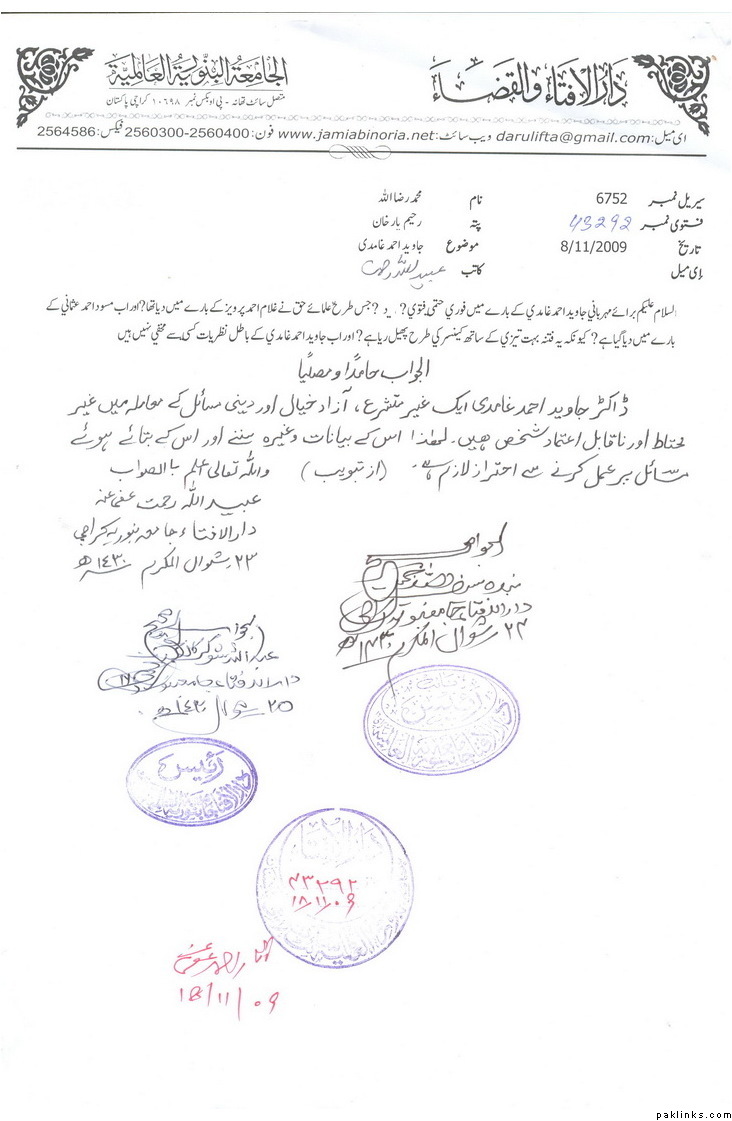 دارالافتاء والقضاء
الجامعة البنورية العالمية
متصل سائٹ تھانہ - پی او بکس نمبر ۱۰۶۹۸ کراچی پاکستان
ای میل: darulifta@gmail.com ویب سائٹ: www.jamiabinoria.net فون: 2560300-2560400 فیکس: 2564586
سیریل نمبر 6752 نام محمد رضا اللہ
فتوی نمبر 43292 پتہ رحیم یار خان
تاریخ 8/11/2009 موضوع جاوید احمد غامدی
ای میل کاتب عبید اللہ رحمت
السلام علیکم برائے مہربانی جاوید احمد غامدی کے بارے میں فوری حتمی فتوی? د ?جس طرح علمائے حق نے غلام احمد پرویز کے بارے میں دیا تھا? اور اب مسود احمد عثمانی کے
بارے میں دیا گیا ہے? کیونکہ یہ فتنہ بہت تیزی کے ساتھ کینسر کی طرح پھیل رہا ہے? اور اب جاوید احمد غامدی کے باطل نظریات کسی سے مخفی نہیں ہیں
الجواب حامدًا و مصلیًا
ڈاکٹر جاوید احمد غامدی ایک غیر متشرع، آزاد خیال اور دینی مسائل کے معاملہ میں غیر
محتاط اور ناقابل اعتماد شخص ہیں۔ لہٰذا اس کے بیانات وغیرہ سننے اور اس کے بتائے ہوئے
مسائل پر عمل کرنے سے احتراز لازم ہے۔ (از تبویب) واللہ تعالیٰ اعلم باالصواب
عبید اللہ رحمت عفی عنہ
دارالافتاء جامعہ بنوریہ کراچی
۲۳ شوال المکرم ۱۴۳۰ھ
الجواب صحیح
دارالافتاء جامعہ بنوریہ
۲۴ شوال المکرم ۱۴۳۰ھ
الجواب صحیح
دارالافتاء جامعہ بنوریہ
۲۵ شوال ۱۴۳۰ھ
رئیس
رئیس
دارالافتاء
۴۳۲۹۲
۱۸/۱۱/۰۹
۱۸/۱۱/۰۹
paklinks.com